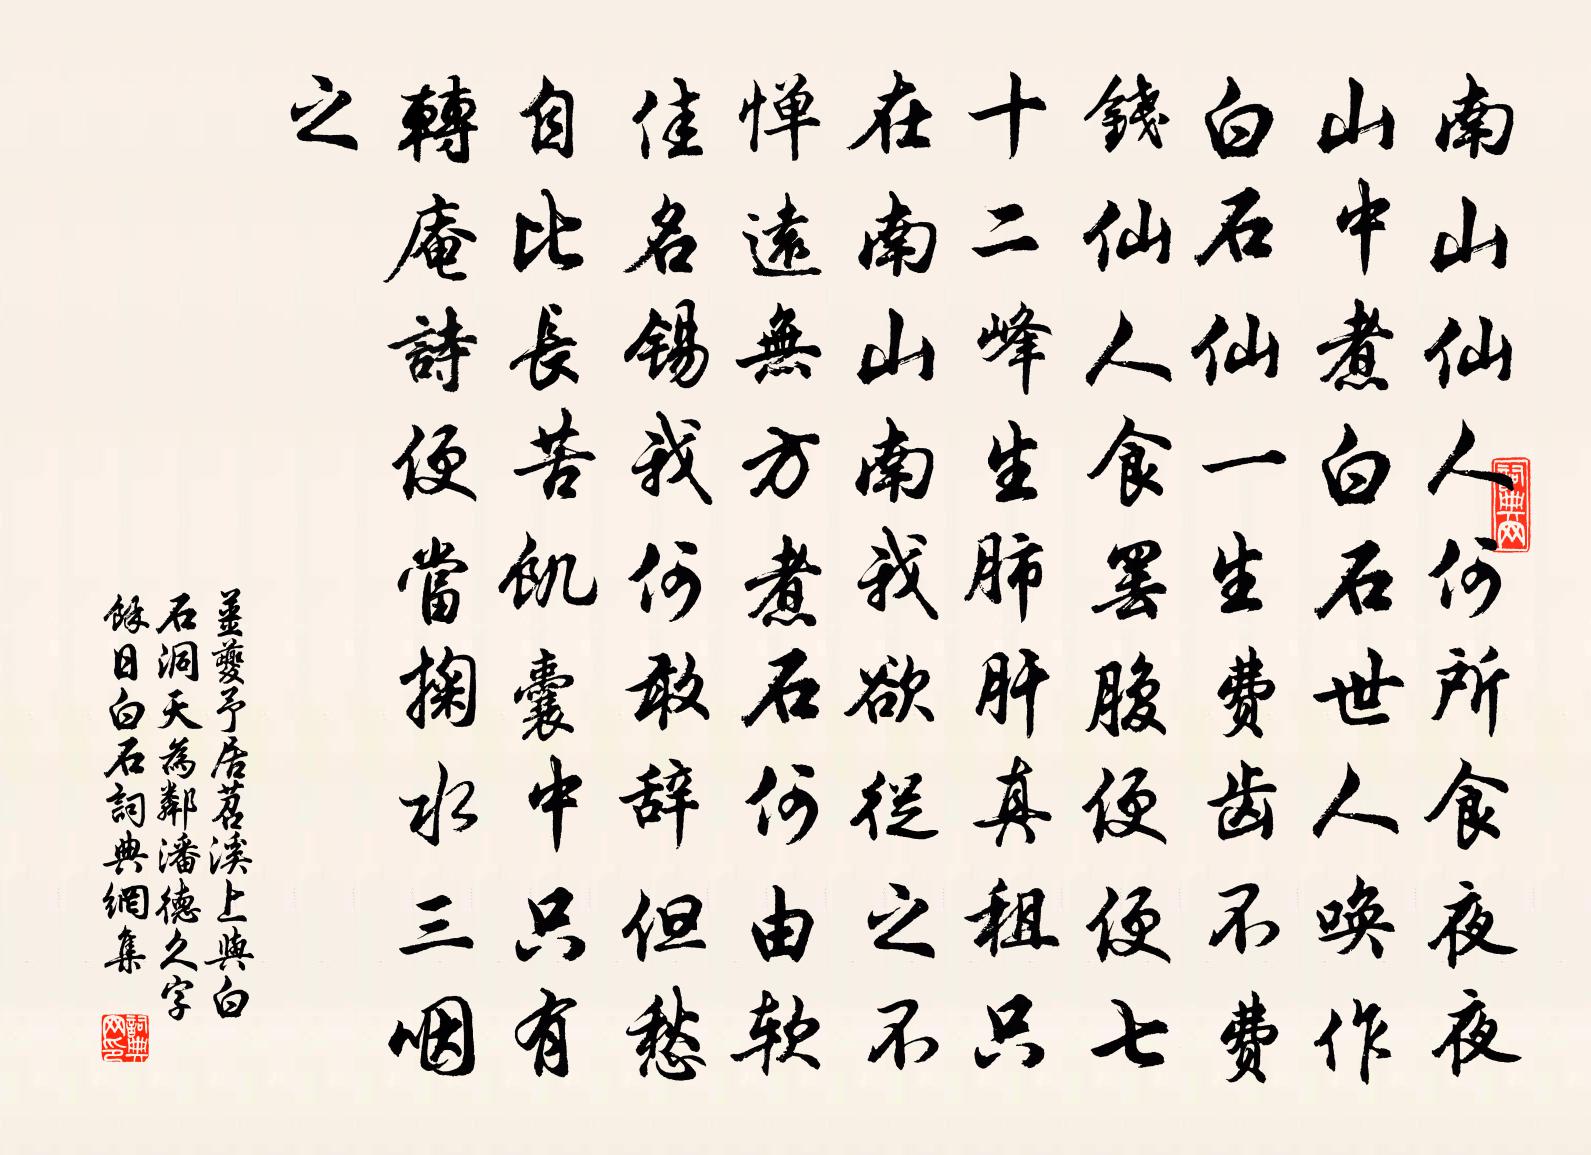 南山仙人何所食夜夜
山中煮白石世人唤作
白石仙一生费齿不费
錢仙人食罢腹便便七
十二峰生肺肝真租只
在南山南我欲從之不
惮遠無方煮石何由软
佳名锡我何敢辞但愁
自比長苦飢囊中只有
轉庵詩便當掬水三咽
之
姜夔予居苕溪上與白
石洞天為鄰潘德久字
餘日白石詞典網集
詞典网
詞典网印